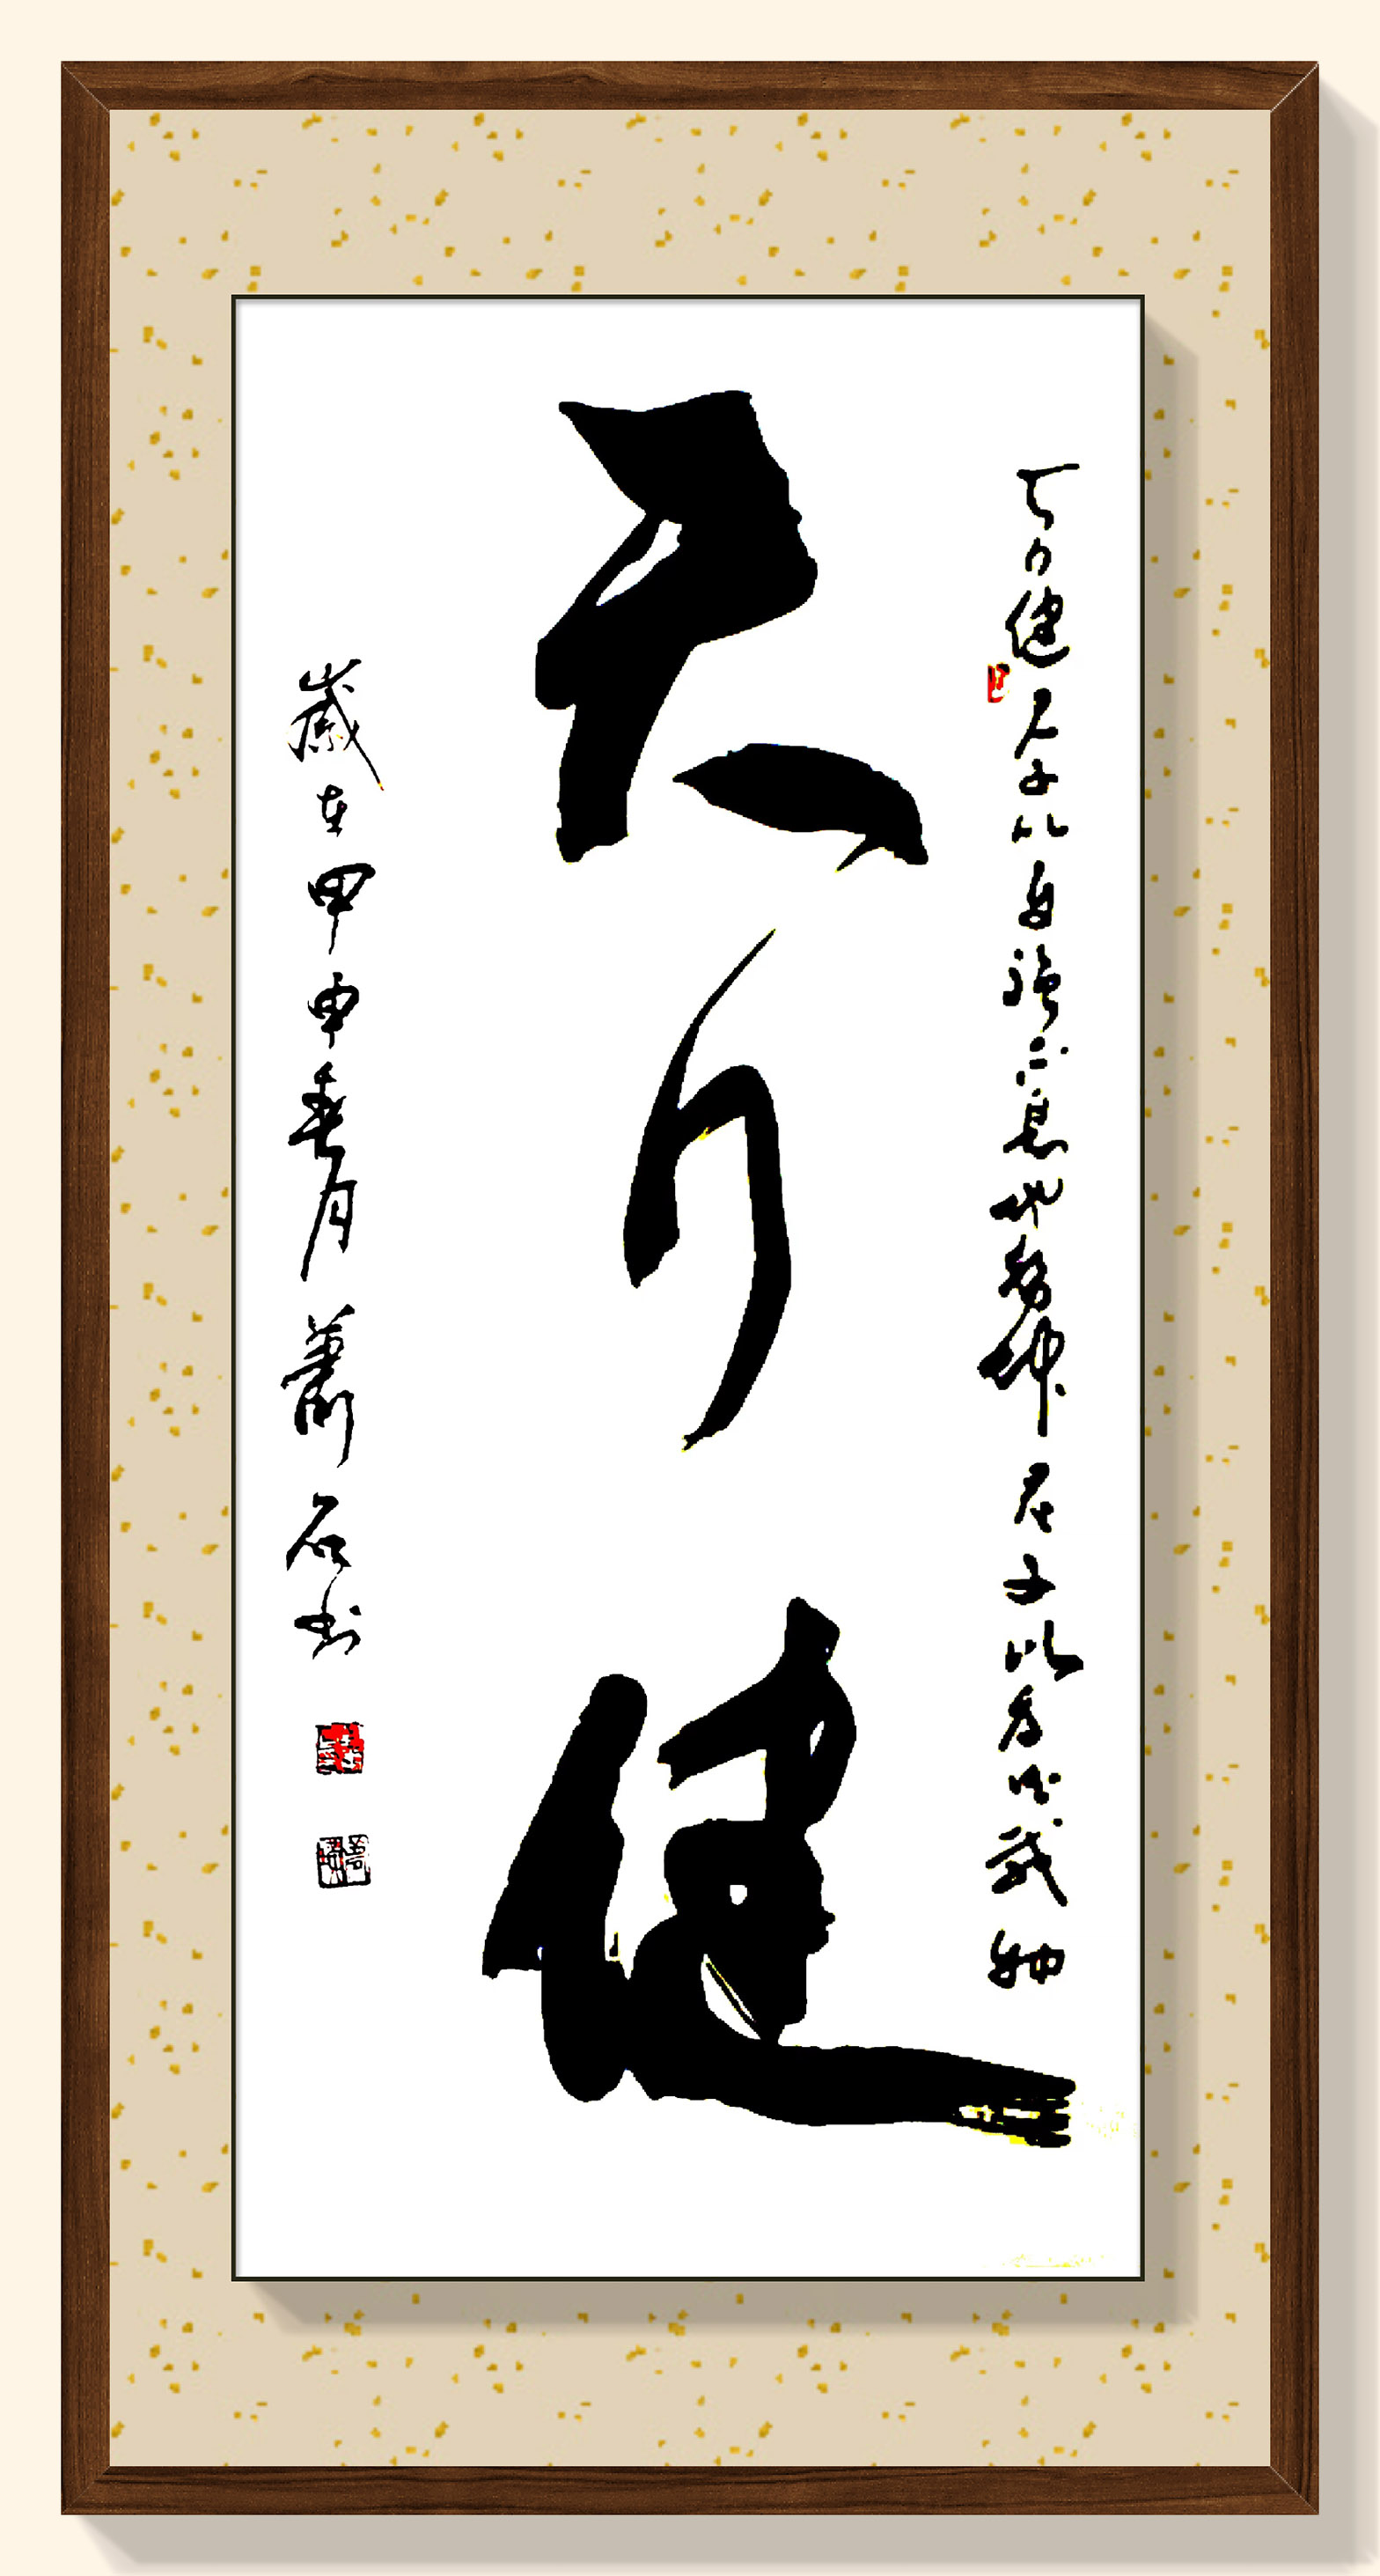 天行健君子以自强不息地势坤君子以厚德载物
天行健
歲在甲申春月蕭石书